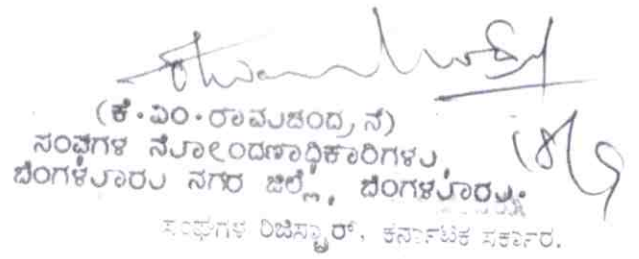 (ಕೆ.ಎಂ.ರಾಮಚಂದ್ರನೆ)
ಸಂಘಗಳ ನೋಂದಣಾಧಿಕಾರಿಗಳು,
ಬೆಂಗಳೂರು ನಗರ ಜಿಲ್ಲೆ, ಬೆಂಗಳೂರು.
ಸಂಘಗಳ ರಿಜಿಸ್ಟ್ರಾರ್, ಕರ್ನಾಟಕ ಸರ್ಕಾರ.